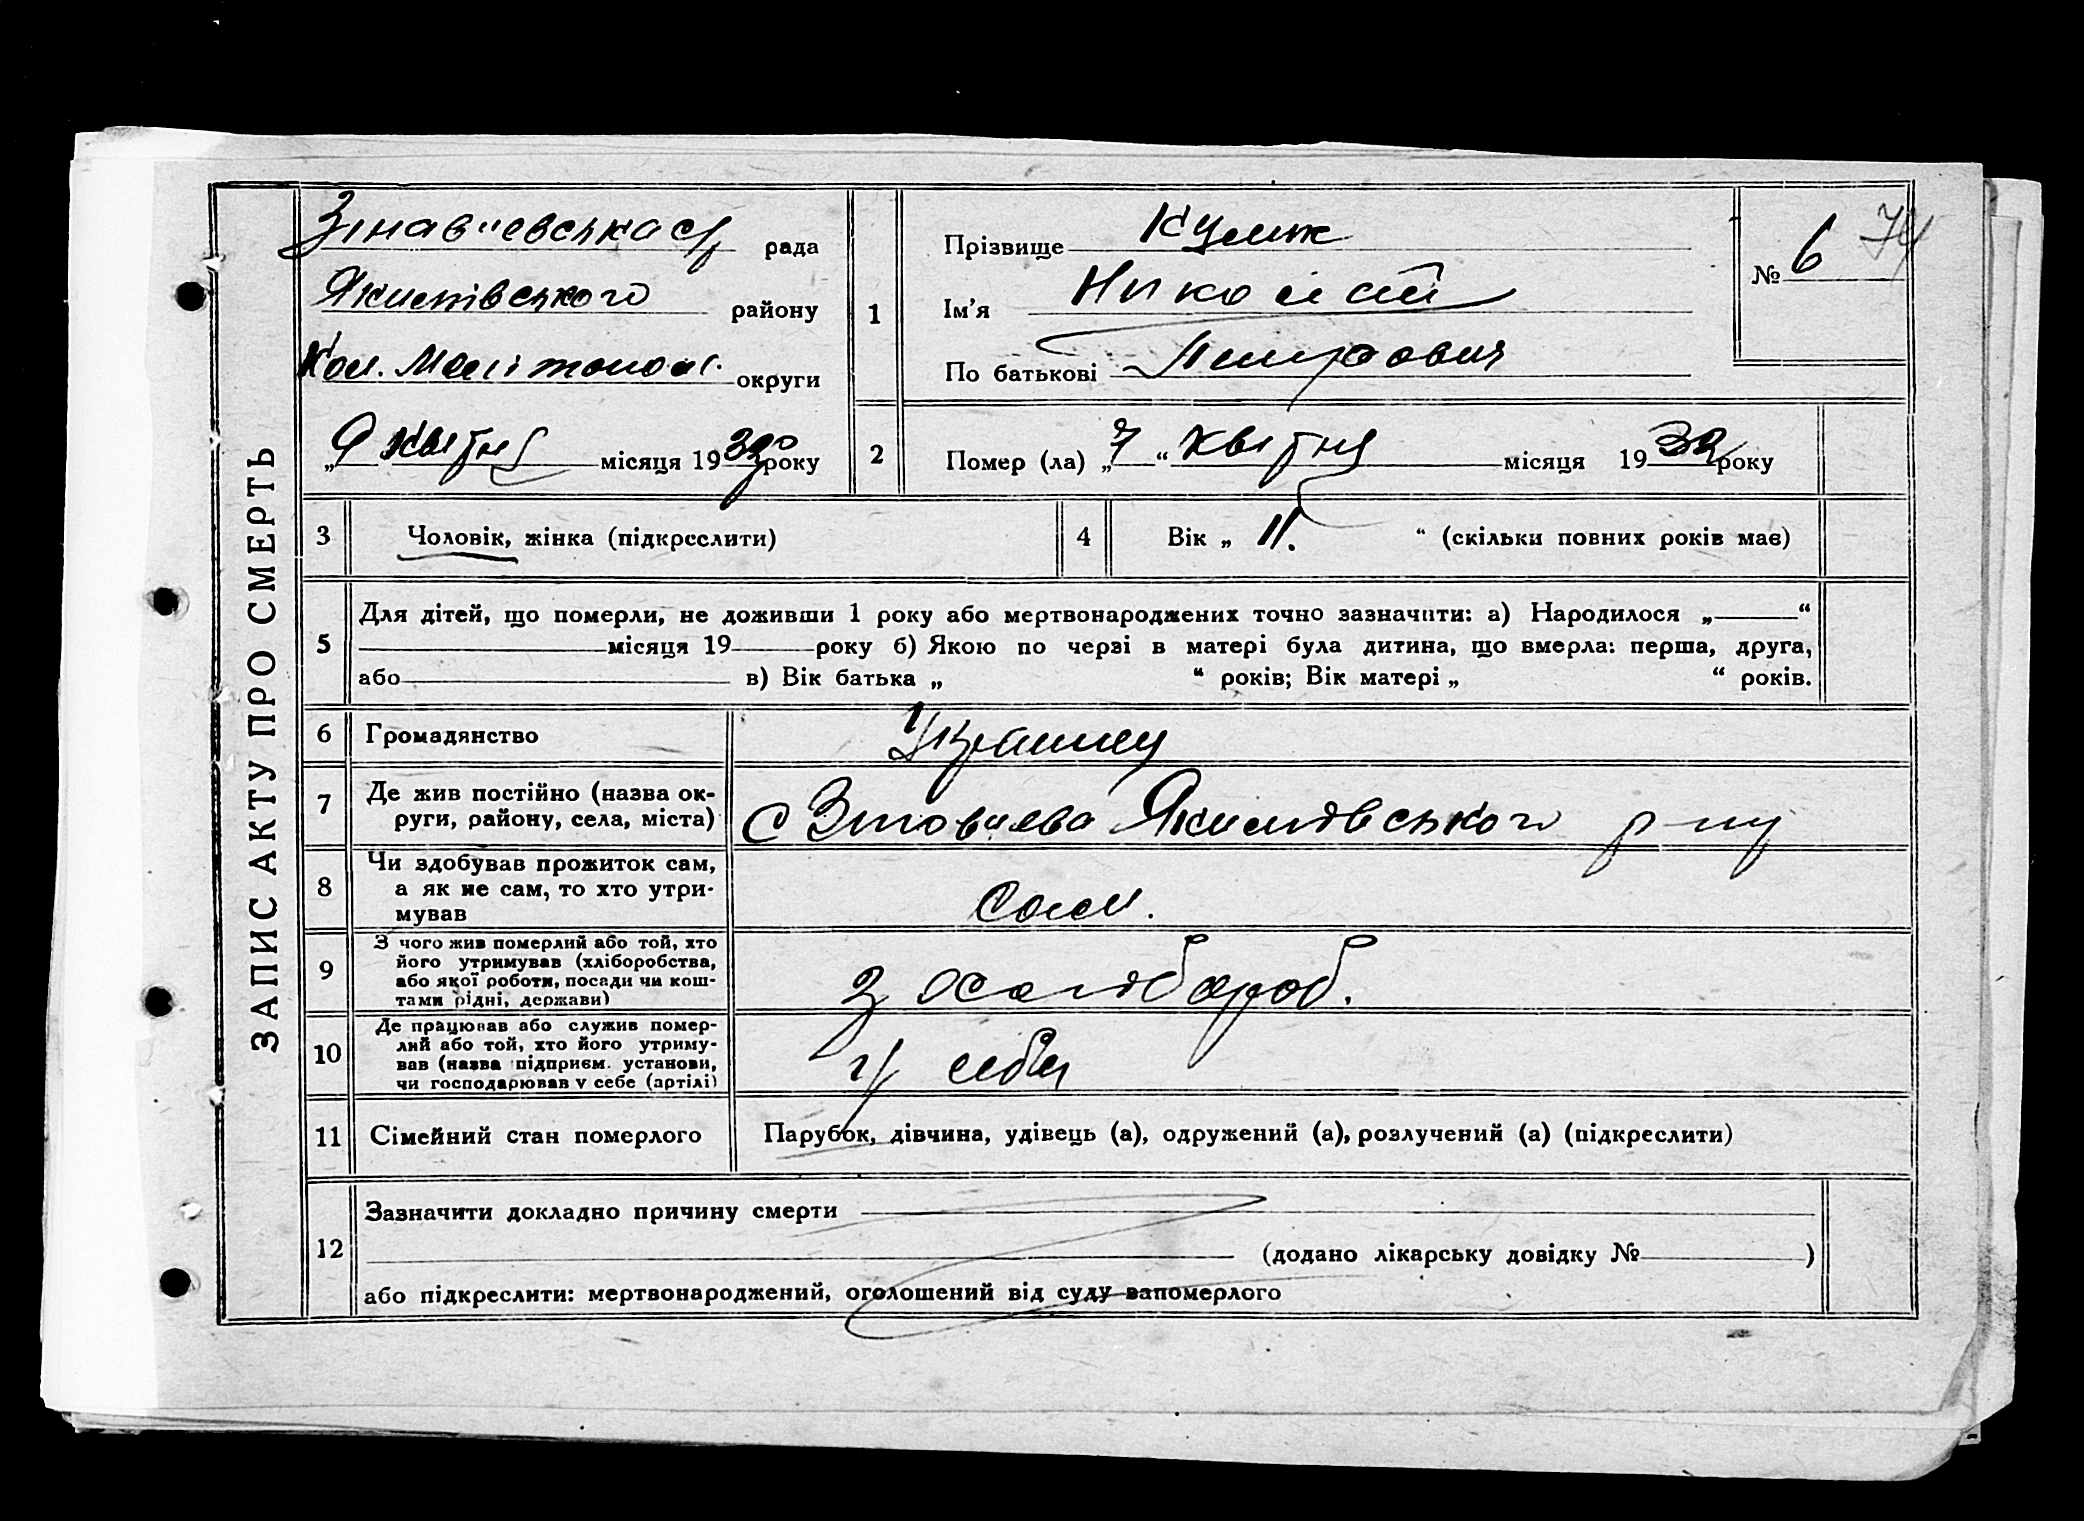 ЗАПИС АКТУ ПРО СМЕРТЬ
Зінавиевська с/ рада
Якимівського району
Кол. Мелітопол. округи
„9 квітня місяця 1932 року
1
Прізвище Кулик
Ім'я Николай
По батькові
№ 6 74
2
Помер (ла) „7“ квітня місяця 1932 року
3 Чоловік, жінка (підкреслити)
4 Вік „ 11. “ (скільки повних років має)
5
Для дітей, що померли, не доживши 1 року або мертвонароджених точно зазначити: а) Народилося „ “
місяця 19 року б) Якою по черзі в матері була дитина, що вмерла: перша, друга,
або в) Вік батька „ “ років; Вік матері „ “ років.
6 Громадянство Украинец
7 Де жив постійно (назва ок-
руги, району, села, міста) с Якимівського р-ну
8 Чи здобував прожиток сам,
а як не сам, то хто утри-
мував Сам.
9 З чого жив померлий або той, хто
його утримував (хліборобства,
або якої роботи, посади чи кош-
тами рідні, держави) З
10 Де працював або служив помер-
лий або той, хто його утриму-
вав (назва підприєм. установи,
чи господарював у себе (артілі) у себя
11 Сімейний стан померлого Парубок, дівчина, удівець (а), одружений (а), розлучений (а) (підкреслити)
12
Зазначити докладно причину смерти
(додано лікарську довідку № )
або підкреслити: мертвонароджений, оголошений від суду запомерлого